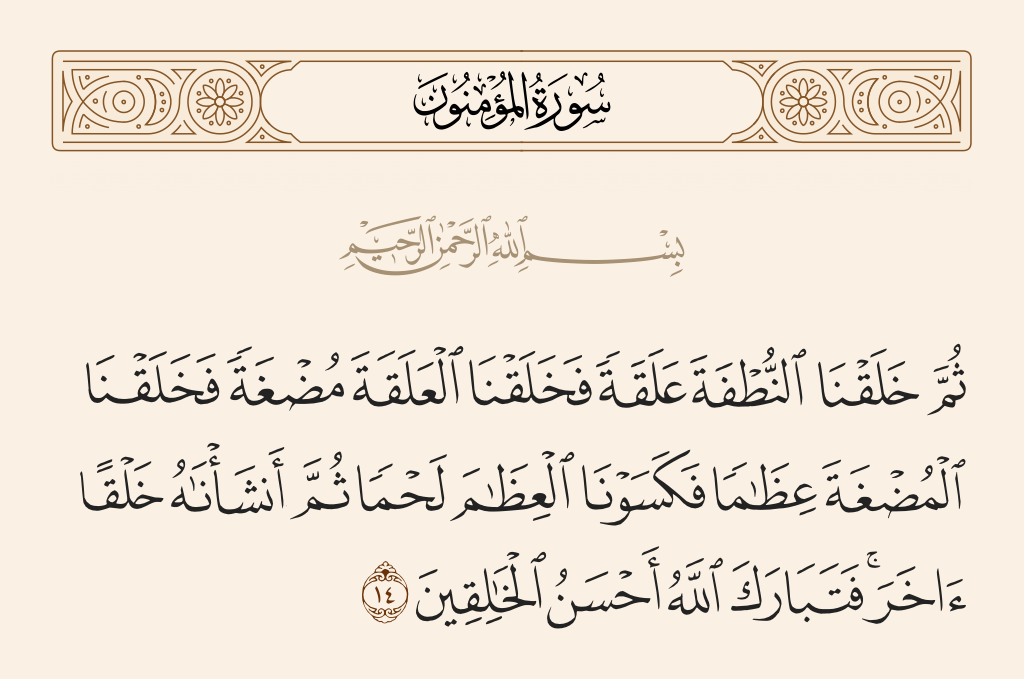 سُورَةُ المُؤْمِنُونَ
بِسْمِ ٱللَّهِ ٱلرَّحْمَٰنِ ٱلرَّحِيمِ
ثُمَّ خَلَقْنَا ٱلنُّطْفَةَ عَلَقَةً فَخَلَقْنَا ٱلْعَلَقَةَ مُضْغَةً فَخَلَقْنَا
ٱلْمُضْغَةَ عِظَٰمًا فَكَسَوْنَا ٱلْعِظَٰمَ لَحْمًا ثُمَّ أَنشَأْنَٰهُ خَلْقًا
ءَاخَرَ ۚ فَتَبَارَكَ ٱللَّهُ أَحْسَنُ ٱلْخَٰلِقِينَ ١٤